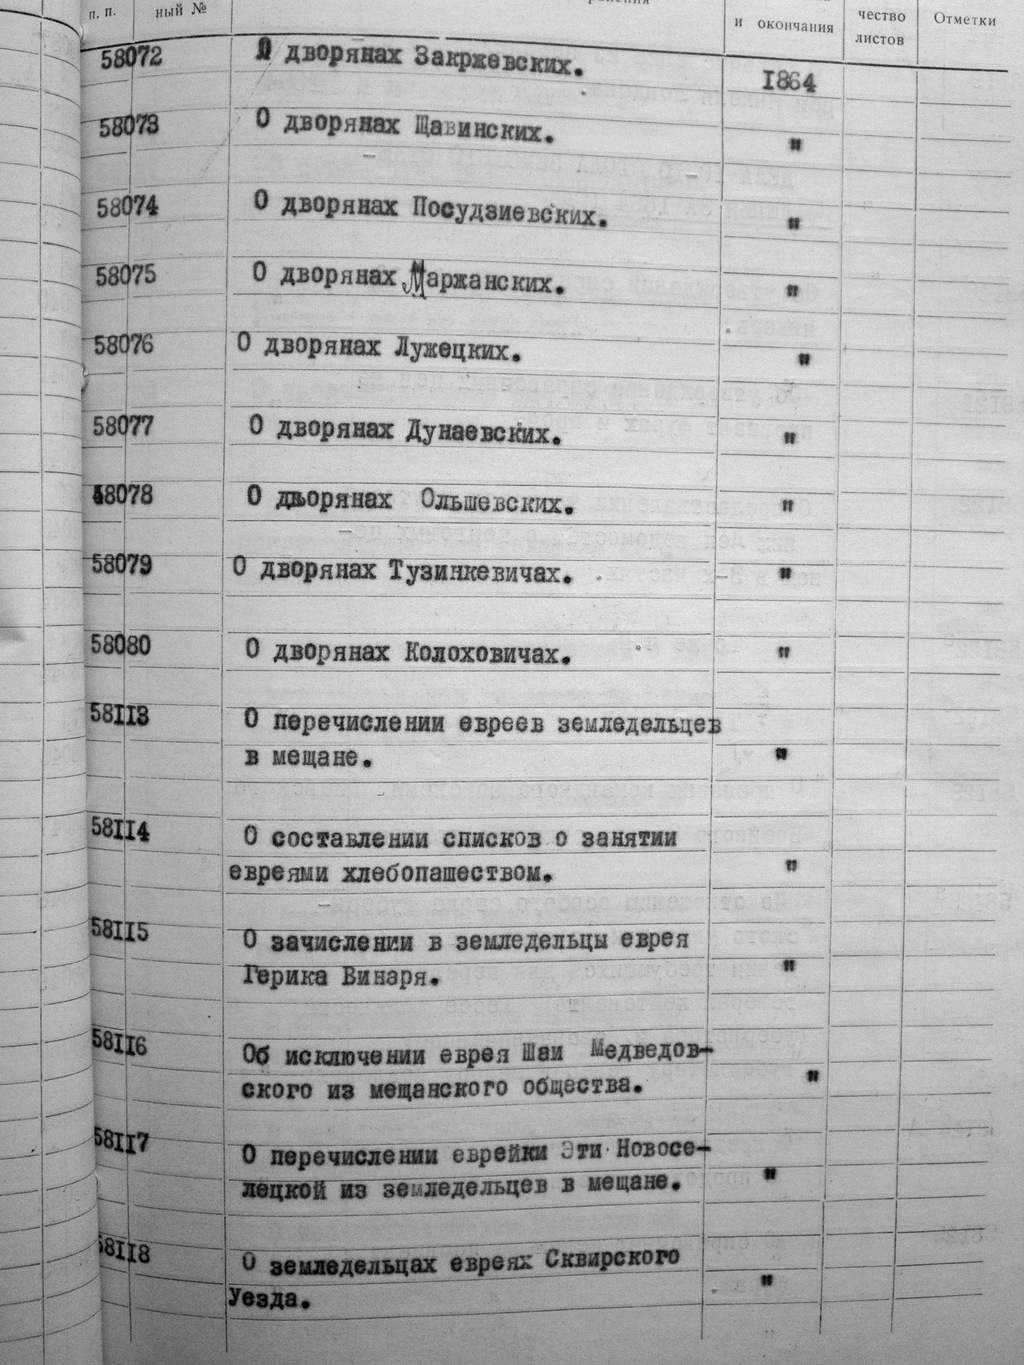 п. п.
ный №
и окончания
чество
листов
Отметки
58072 О дворянах Закржевских. 1864
58073 О дворянах Щавинских. "
58074 О дворянах Посудзиевских. "
58075 О дворянах Маржанских. "
58076 О дворянах Лужецких. "
58077 О дворянах Дунаевских. "
58078 О дворянах Ольшевских. "
58079 О дворянах Тузинкевичах. "
58080 О дворянах Колоховичах. "
58113 О перечислении евреев земледельцев
в мещане. "
58114 О составлении списков о занятии
евреями хлебопашеством. "
58115 О зачислении в земледельцы еврея
Герика Винаря. "
58116 Об исключении еврея Шаи Медведов-
ского из мещанского общества. "
58117 О перечислении еврейки Эти Новосе-
лецкой из земледельцев в мещане. "
58118 О земледельцах евреях Сквирского
Уезда. "